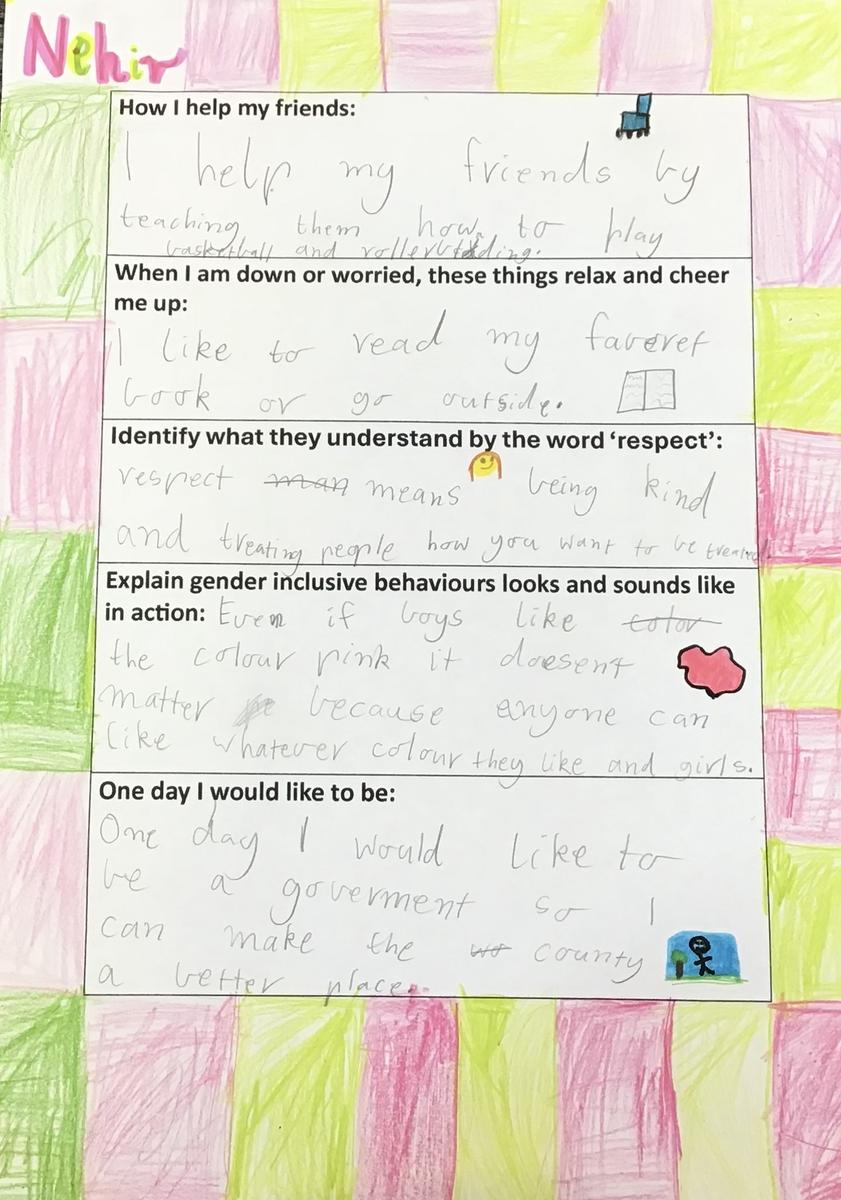 Nehir
How I help my friends:
I help my friends by
teaching them how to play
basketball and rollerblading.
When I am down or worried, these things relax and cheer
me up:
I like to read my faveret
book or go outside.
Identify what they understand by the word ‘respect’:
respect man means being kind
and treating people how you want to be treated
Explain gender inclusive behaviours looks and sounds like
in action: Even if boys like color
the colour pink it doesent
matter because anyone can
like whatever colour they like and girls.
One day I would like to be:
One day I would like to
be a goverment so I
can make the wo county
a better place.